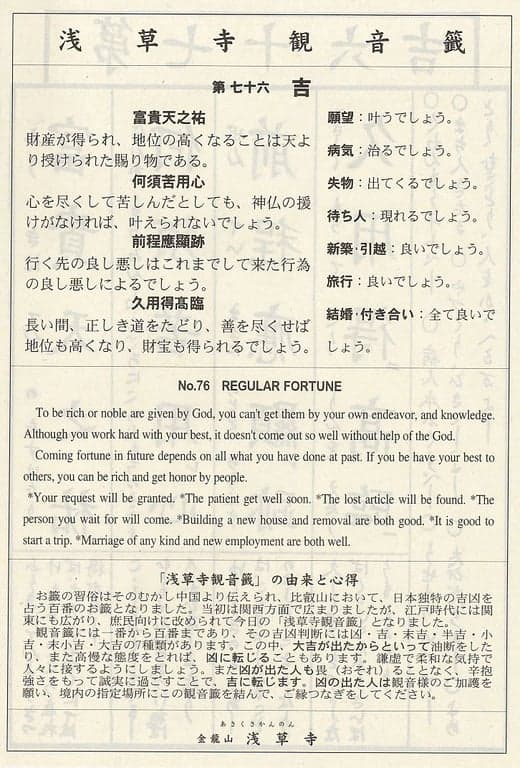 浅草寺観音籤
第七十六 吉
富貴天之祐
財産が得られ、地位の高くなることは天よ
り授けられた賜り物である。
何須苦用心
心を尽くして苦しんだとしても、神仏の援
けがなければ、叶えられないでしょう。
前程應顯跡
行く先の良し悪しはこれまでして来た行為
の良し悪しによるでしょう。
久用得髙臨
長い間、正しき道をたどり、善を尽くせば
地位も高くなり、財宝も得られるでしょう。
願望：叶うでしょう。
病気：治るでしょう。
失物：出てくるでしょう。
待ち人：現れるでしょう。
新築・引越：良いでしょう。
旅行：良いでしょう。
結婚・付き合い：全て良いで
しょう。
No.76 REGULAR FORTUNE
To be rich or noble are given by God, you can't get them by your own endeavor, and knowledge.
Although you work hard with your best, it doesn't come out so well without help of the God.
Coming fortune in future depends on all what you have done at past. If you be have your best to
others, you can be rich and get honor by people.
*Your request will be granted. *The patient get well soon. *The lost article will be found. *The
person you wait for will come. *Building a new house and removal are both good. *It is good to
start a trip. *Marriage of any kind and new employment are both well.
「浅草寺観音籤」の由来と心得
お籤の習俗はそのむかし中国より伝えられ、比叡山において、日本独特の吉凶を
占う百番のお籤となりました。当初は関西方面で広まりましたが、江戸時代には関
東にも広がり、庶民向けに改められて今日の「浅草寺観音籤」となりました。
観音籤には一番から百番まであり、その吉凶判断には凶・吉・末吉・半吉・小
吉・末小吉・大吉の7種類があります。この中、大吉が出たからといって油断をした
り、また高慢な態度をとれば、凶に転じることもあります。謙虚で柔和な気持で
人々に接するようにしましょう。また凶が出た人も畏（おそれ）ることなく、辛抱
強さをもって誠実に過ごすことで、吉に転じます。凶の出た人は観音様のご加護を
願い、境内の指定場所にこの観音籤を結んで、ご縁つなぎをしてください。
あさくさかんのん
金龍山 浅草寺